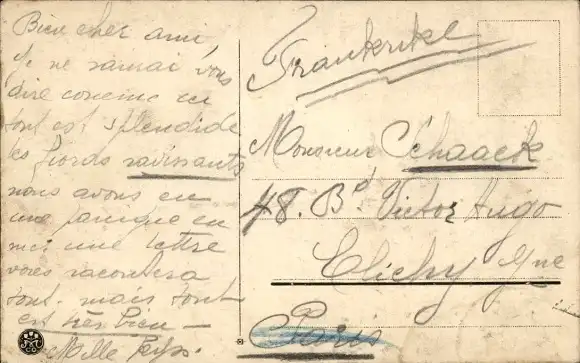 Bien cher ami
Je ne saurai vous
dire comme ici
tout est splendide
les fiords ravissants
nous avons eu
une panique en
mer une lettre
vous racontera
tout. mais tout
est très bien —
Mille
Frankrike
Monsieur Schaack
48. Bd. Victor Hugo
Clichy
Paris